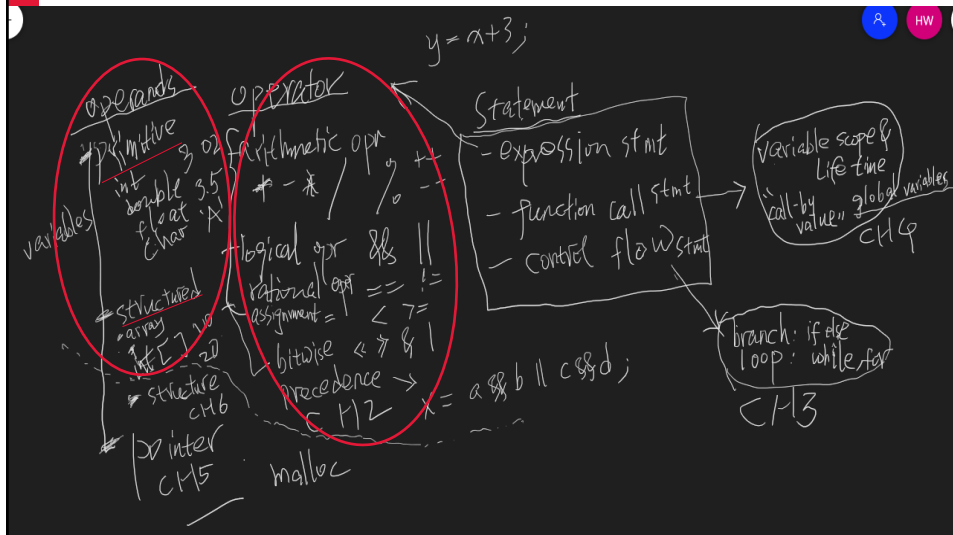 HW
y = x+3;
operands
primitive
int 3, 02
double 3.5
float 'A'
char
variables
structured
array
int[ ] 10
20
structure
CH6
pointer
CH5
malloc
operator
arithmetic opr
+ - * / % ++ --
logical opr && ||
rational opr == !=
assignment = < >=
bitwise << >> & |
precedence →
CH2
x = a && b || c && d;
Statement
- expression stmt
- function call stmt
- control flow stmt
variable scope &
Life time
"call-by value" global variables
CH4
branch: if else
loop: while, for
CH3